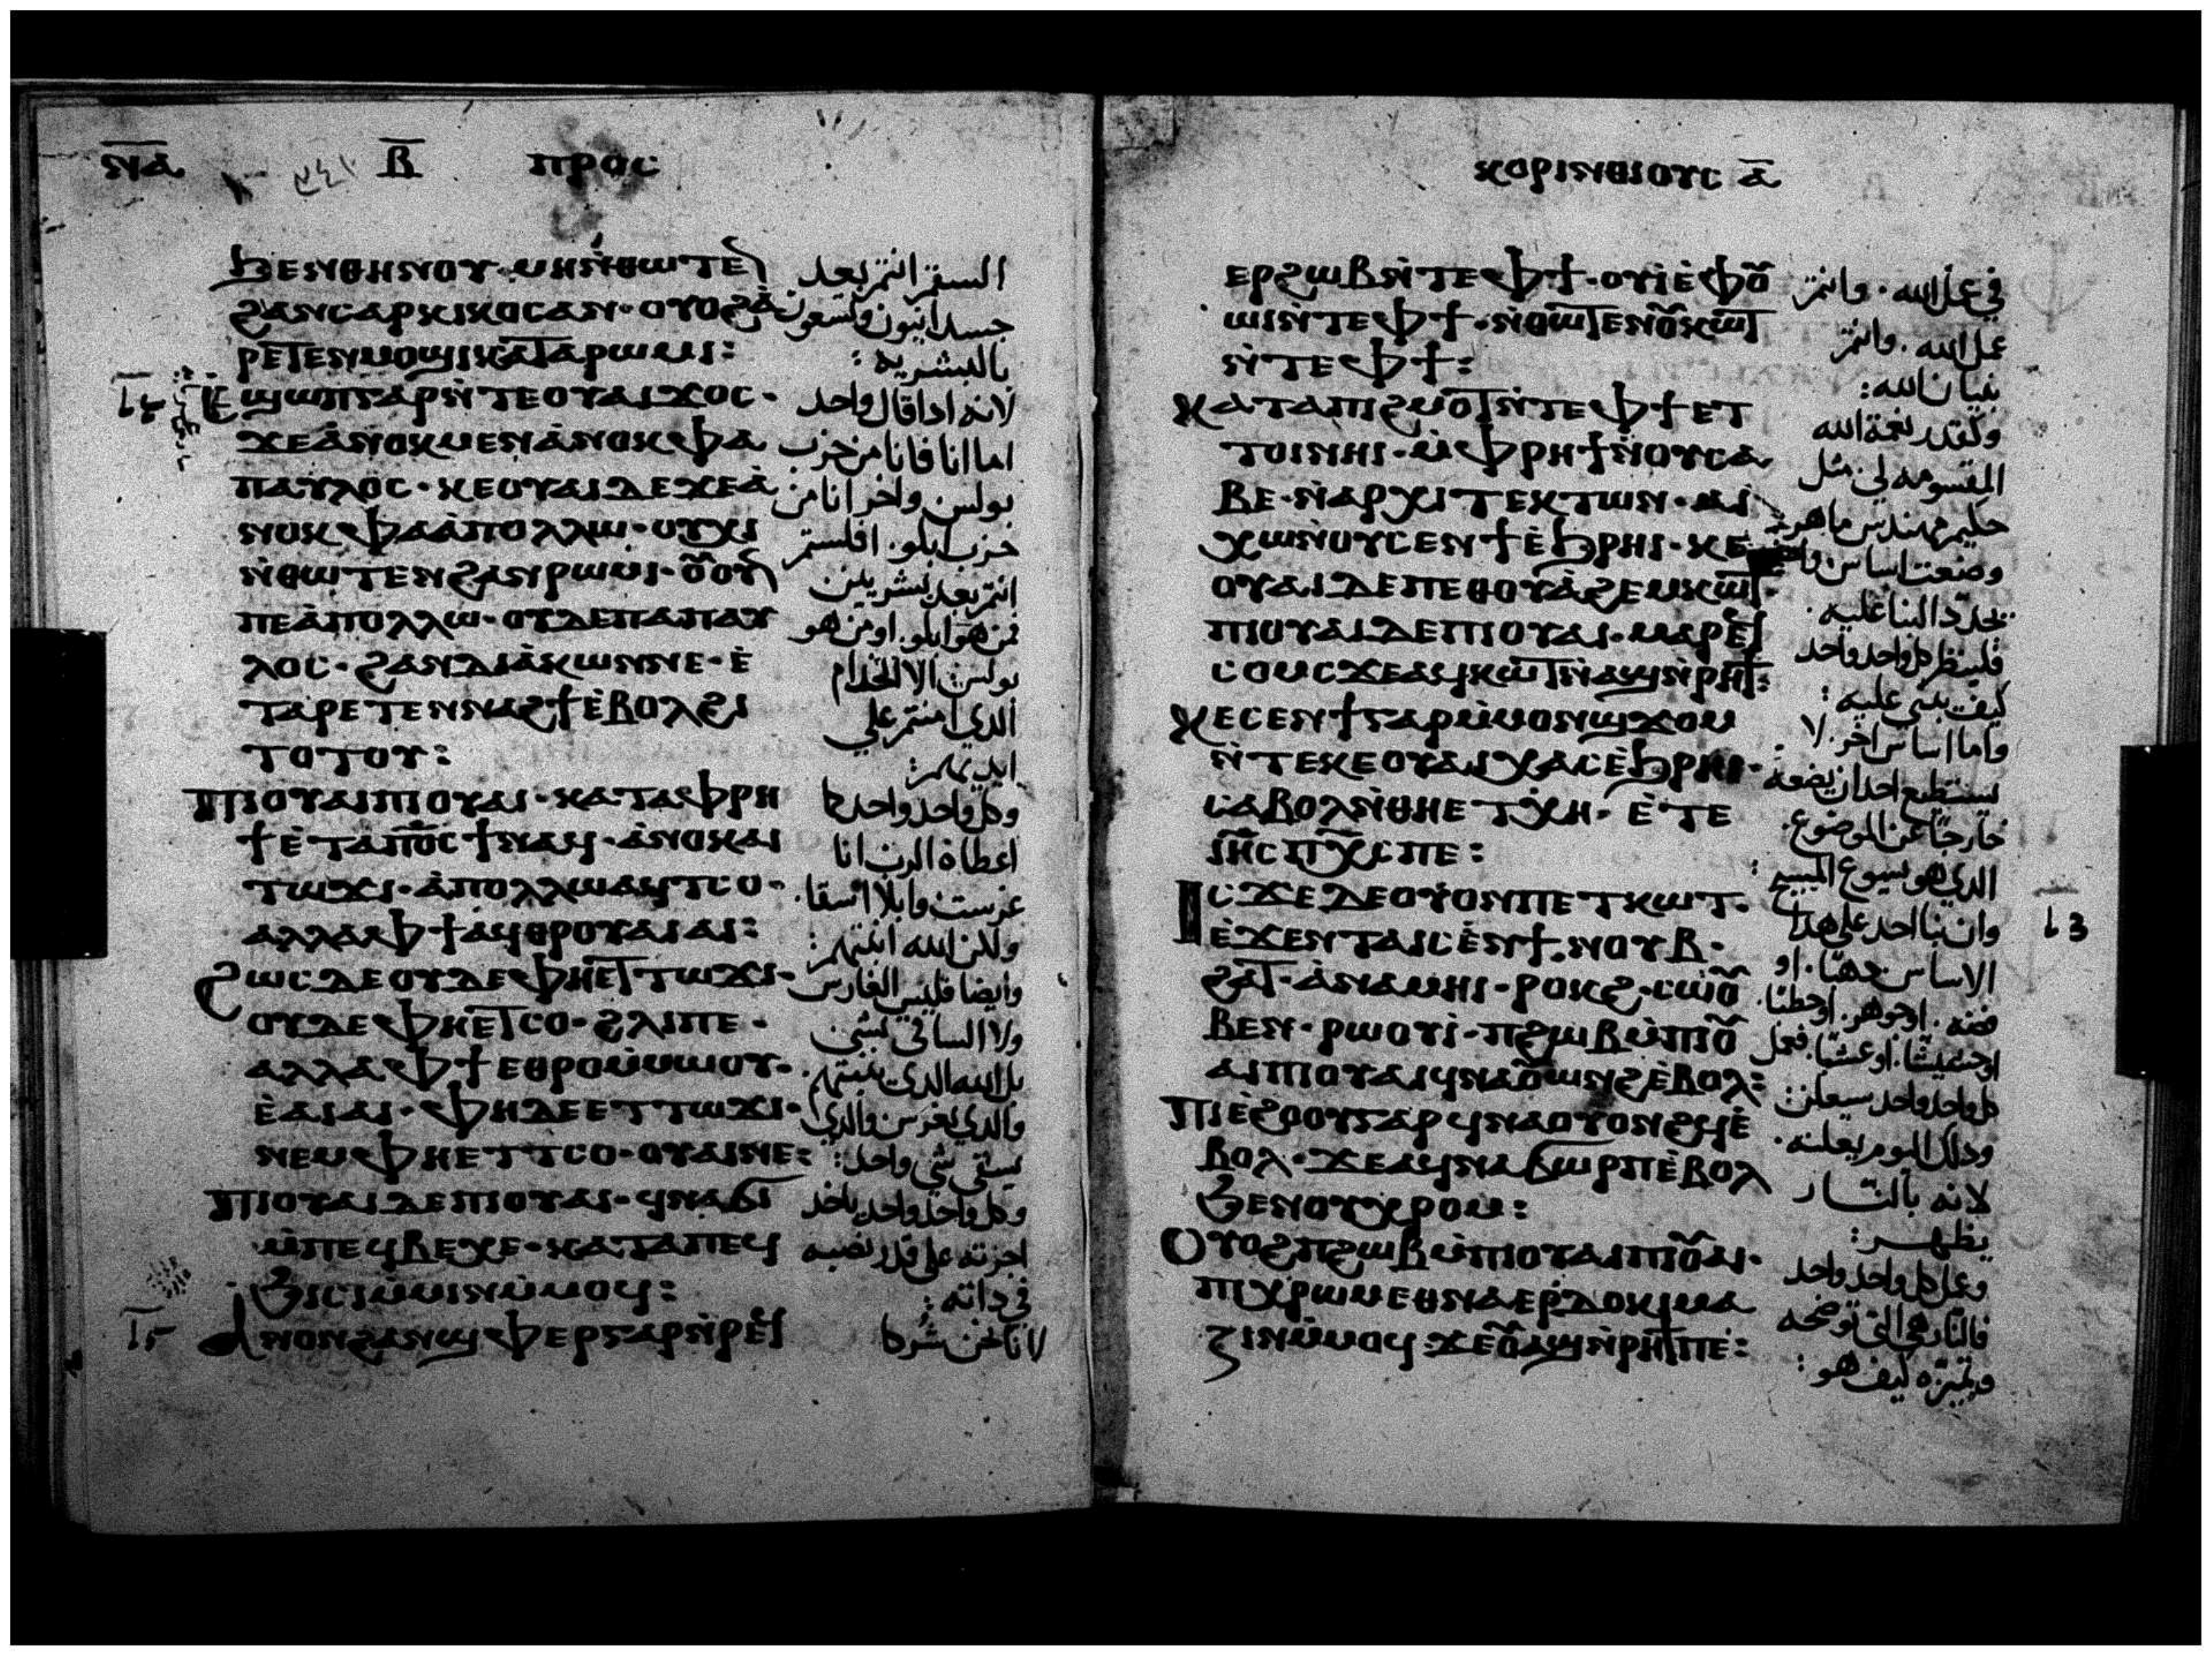 ⲛ̅ⲁ̅ ⲃ̅ ⲡⲣⲟⲥ
ϧⲉⲛⲑⲏⲛⲟⲩ· ⲙⲏⲛ̀ⲑⲱⲧⲉ̅
ϩⲁⲛⲥⲁⲣⲕⲓⲕⲟⲥⲁⲛ· ⲟⲩⲟϩⲁ̀
ⲣⲉⲧⲉⲛⲙⲟϣⲓⲕⲁⲧⲁⲣⲱⲙⲓ:
ⲉϣⲱⲡⲅⲁⲣⲛ̀ⲧⲉⲟⲩⲁⲓϫⲟⲥ·
ϫⲉⲁ̀ⲛⲟⲕⲙⲉⲛⲁ̀ⲛⲟⲕⲫⲁ
ⲡⲁⲩⲗⲟⲥ· ⲕⲉⲟⲩⲁⲓⲇⲉϫⲉⲁ̀
ⲛⲟⲕⲫⲁⲁ̀ⲡⲟⲗⲗⲱ· ⲟⲩⲭⲓ
ⲛ̀ⲑⲱⲧⲉⲛϩⲁⲛⲣⲱⲙⲓ· ⲟ̅ⲟⲩ̅
ⲡⲉⲁ̀ⲡⲟⲗⲗⲱ· ⲟⲩⲇⲉⲡⲁⲡⲁⲩ
ⲗⲟⲥ· ϩⲁⲛⲇⲓⲁ̀ⲕⲱⲛⲛⲉ· ⲉ̀
ⲧⲁⲣⲉⲧⲉⲛⲛⲁϩϯⲉ̀ⲃⲟⲗϩⲓ
ⲧⲟⲧⲟⲩ:
ⲡⲓⲟⲩⲁⲓⲡⲓⲟⲩⲁⲓ· ⲕⲁⲧⲁⲫⲣⲏ
ϯⲉ̀ⲧⲁⲡⲟ̅ⲥ̅ϯⲛⲁϥ· ⲁ̀ⲛⲟⲕⲁⲓ
ⲧⲱϫⲓ· ⲁ̀ⲡⲟⲗⲗⲱⲁϥⲧⲥⲟ·
ⲁⲗⲗⲁⲫϯⲁϥⲑⲣⲟⲩⲁⲓⲁⲓ:
ϩⲱⲥⲇⲉⲟⲩⲇⲉⲫⲏⲉⲧⲧⲱϫⲓ·
ⲟⲩⲇⲉⲫⲏⲉⲧⲥⲟ· ϩⲗⲓⲡⲉ·
ⲁⲗⲗⲁⲫϯⲉⲑⲣⲟⲩ̀ⲙⲙⲱⲟⲩ·
ⲉ̀ⲁⲓⲁⲓ· ⲫⲏⲇⲉⲉⲧⲧⲱϫⲓ·
ⲛⲉⲙⲫⲏⲉⲧⲧⲥⲟ· ⲟⲩⲁⲓⲛⲉ:
ⲡⲓⲟⲩⲁⲓⲇⲉⲡⲓⲟⲩⲁⲓ· ϥⲛⲁϭⲓ
ⲙ̀ⲡⲉϥⲃⲉⲭⲉ· ⲕⲁⲧⲁⲡⲉϥ
ϧⲓⲥⲓⲙ̀ⲙⲓⲛⲙ̀ⲙⲟϥ:
ⲁⲛⲟⲛϩⲁⲛϣⲫⲉⲣⲅⲁⲣⲛ̀ⲣⲉϥ
السفر انتم بعد
جسدانيون وتسعون
بالبشريه :
لانه اذا قال واحد
اما انا فانا من حزب
بولس واخر انا من
حزب ابلو . افلستم
انتم بعد بشريين
فمن هو ابلو . او من هو
بولس الا الخدام
الذي امنتم علي
ايديهم :
وكل واحد واحد كما
اعطاه الرب انا
غرست وابلا اسقا .
ولكن الله انبتهم :
وايضا فليس الغارس
ولا الساقي بشي
بل الله الذي ينبتهم .
والذي يغرس والذي
يسقي شي واحد :
وكل واحد واحد ياخذ
اجرته علي قدر نصبه
في ذاته :
لاننا نحن شركا
ⲕⲟⲣⲓⲛⲑⲓⲟⲩⲥ ⲁ̅
ⲉⲣϩⲱⲃⲛ̀ⲧⲉⲫϯ· ⲟⲩⲓ̀ⲉ̀ⲫⲟ̅
ϣⲓⲛ̀ⲧⲉⲫϯ· ⲛ̀ⲑⲱⲧⲉⲛⲟ̅ⲕⲱⲧ
ⲛ̀ⲧⲉⲫϯ:
ⲕⲁⲧⲁⲡⲓϩⲙⲟⲧⲛ̀ⲧⲉⲫϯⲉⲧ
ⲧⲟⲓⲛⲏⲓ· ⲙ̀ⲫⲣⲏϯⲛ̀ⲟⲩⲥⲁ
ⲃⲉ· ⲛ̀ⲁⲣⲭⲓⲧⲉⲕⲧⲱⲛ· ⲁⲓ
ⲭⲱⲛ̀ⲟⲩⲥⲉⲛϯⲉ̀ϧⲣⲏⲓ· ⲕⲉ
ⲟⲩⲁⲓⲇⲉⲡⲉⲑⲟⲩⲁ̀ϩⲉⲙⲕⲱⲧ·
ⲡⲓⲟⲩⲁⲓⲇⲉⲡⲓⲟⲩⲁⲓ· ⲙⲁⲣⲉϥ
ⲥⲟⲙⲥϫⲉⲁϥⲕⲱⲧⲛ̀ⲁϣⲛ̀ⲣⲏϯ:
ϫⲉⲥⲉⲛϯⲅⲁⲣⲙ̀ⲙⲟⲛϣϫⲟⲙ
ⲛ̀ⲧⲉⲕⲉⲟⲩⲁⲓⲭⲁⲥⲉ̀ϧⲣⲏⲓ·
ⲥⲁⲃⲟⲗⲛ̀ⲑⲏⲉⲧⲭⲏ· ⲉ̀ⲧⲉ
ⲓⲏ̅ⲥ̅ⲡⲭ̅ⲥ̅ⲡⲉ:
ⲓⲥϫⲉⲇⲉⲟⲩⲟⲛⲡⲉⲧⲕⲱⲧ·
ⲉ̀ϫⲉⲛⲧⲁⲓⲥⲉ̀ⲛϯ· ⲛⲟⲩⲃ·
ϩⲁⲧ· ⲁ̀ⲛⲁⲙⲏⲓ· ⲣⲟⲕϩ· ⲥⲱⲟ̅
ⲃⲉⲛ· ⲣⲱⲟⲩⲓ̀· ⲡϩⲱⲃⲙ̀ⲡⲓⲟ̅
ⲁⲓⲡⲓⲟⲩⲁⲓϥⲛⲁⲟ̅ⲱⲛϩⲉ̀ⲃⲟⲗ:
ⲡⲓⲉ̀ϩⲟⲟⲩⲅⲁⲣϥⲛⲁⲟⲩⲟⲛϩϥⲉ̀
ⲃⲟⲗ· ϫⲉⲁϥⲛⲁϭⲱⲣⲡⲉ̀ⲃⲟⲗ
ϧⲉⲛⲟⲩⲭⲣⲟⲙ:
ⲟⲩⲟϩⲡϩⲱⲃⲙ̀ⲡⲓⲟⲩⲁⲓⲡⲓⲟ̅ⲁⲓ·
ⲡⲓⲭⲣⲱⲙⲉⲑⲛⲁⲉⲣⲇⲟⲕⲓⲙⲁ
ⲍⲓⲛⲙ̀ⲙⲟϥ· ϫⲉⲟ̅ⲁϣⲛ̀ⲣⲏϯⲡⲉ:
في عمل الله . وانتم
عمل الله . وانتم
بنيان الله :
وكقدر نعمة الله
المقسومه لي مثل
حكيم مهندس ماهر
وضعت اساس
يجدد البنا عليه .
فلينظر كل واحد واحد
كيف يبني عليه :
واما اساس اخر . لا
يستطيع احد ان يضعه
خارجا عن الموضوع .
الذي هو يسوع المسيح :
وان بنا احد علي هذا
الاساس ذهبا . او
فضه . او جوهر . او حطبا .
او حشيشا . او عشبا . فعمل
كل واحد واحد سيعلن :
وذلك اليوم يعلنه .
لانه بالنار
يظهر :
وعمل كل واحد واحد
فالنار هي التي توضحه
وتميزه كيف هو :